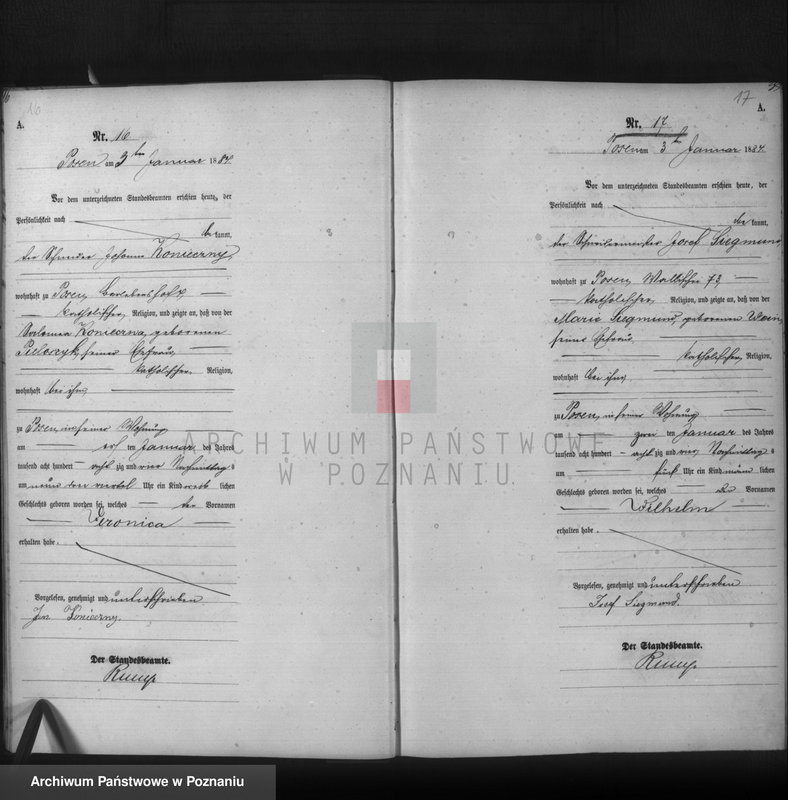 16
A.
Nr. 16
Posen am 3ten Januar 1884.
Vor dem unterzeichneten Standesbeamten erschien heute, der
Persönlichkeit nach
be kannt,
der Schneider Johann Konieczny,
wohnhaft zu Posen,
katholischer Religion, und zeigte an, daß von der
Salomea Konieczna, geborenen
seiner Ehefrau,
katholischer Religion,
wohnhaft bei ihm,
zu Posen, in seiner Wohnung
am ersten Januar des Jahres
tausend acht hundert acht zig und vier Vormittags
um neun Uhr ein Kind weib lichen
Geschlechts geboren worden sei, welches den Vornamen
Veronica
erhalten habe.
Vorgelesen, genehmigt und unterschrieben
Konieczny.
Der Standesbeamte.
Rump
17
A.
Nr. 17
Posen am 3ten Januar 1884.
Vor dem unterzeichneten Standesbeamten erschien heute, der
Persönlichkeit nach
be kannt,
der Josef Siegmund,
wohnhaft zu Posen, Wallischei 73,
katholischer Religion, und zeigte an, daß von der
Marie Siegmund, geborenen
seiner Ehefrau,
katholischer Religion,
wohnhaft bei ihm,
zu Posen, in seiner Wohnung
am zwei ten Januar des Jahres
tausend acht hundert acht zig und vier, Vormittags
um fünf Uhr ein Kind männ lichen
Geschlechts geboren worden sei, welches den Vornamen
Wilhelm
erhalten habe.
Vorgelesen, genehmigt und unterschrieben
Josef Siegmund.
Der Standesbeamte.
Rump
ARCHIWUM PAŃSTWOWE
W POZNANIU
Archiwum Państwowe w Poznaniu